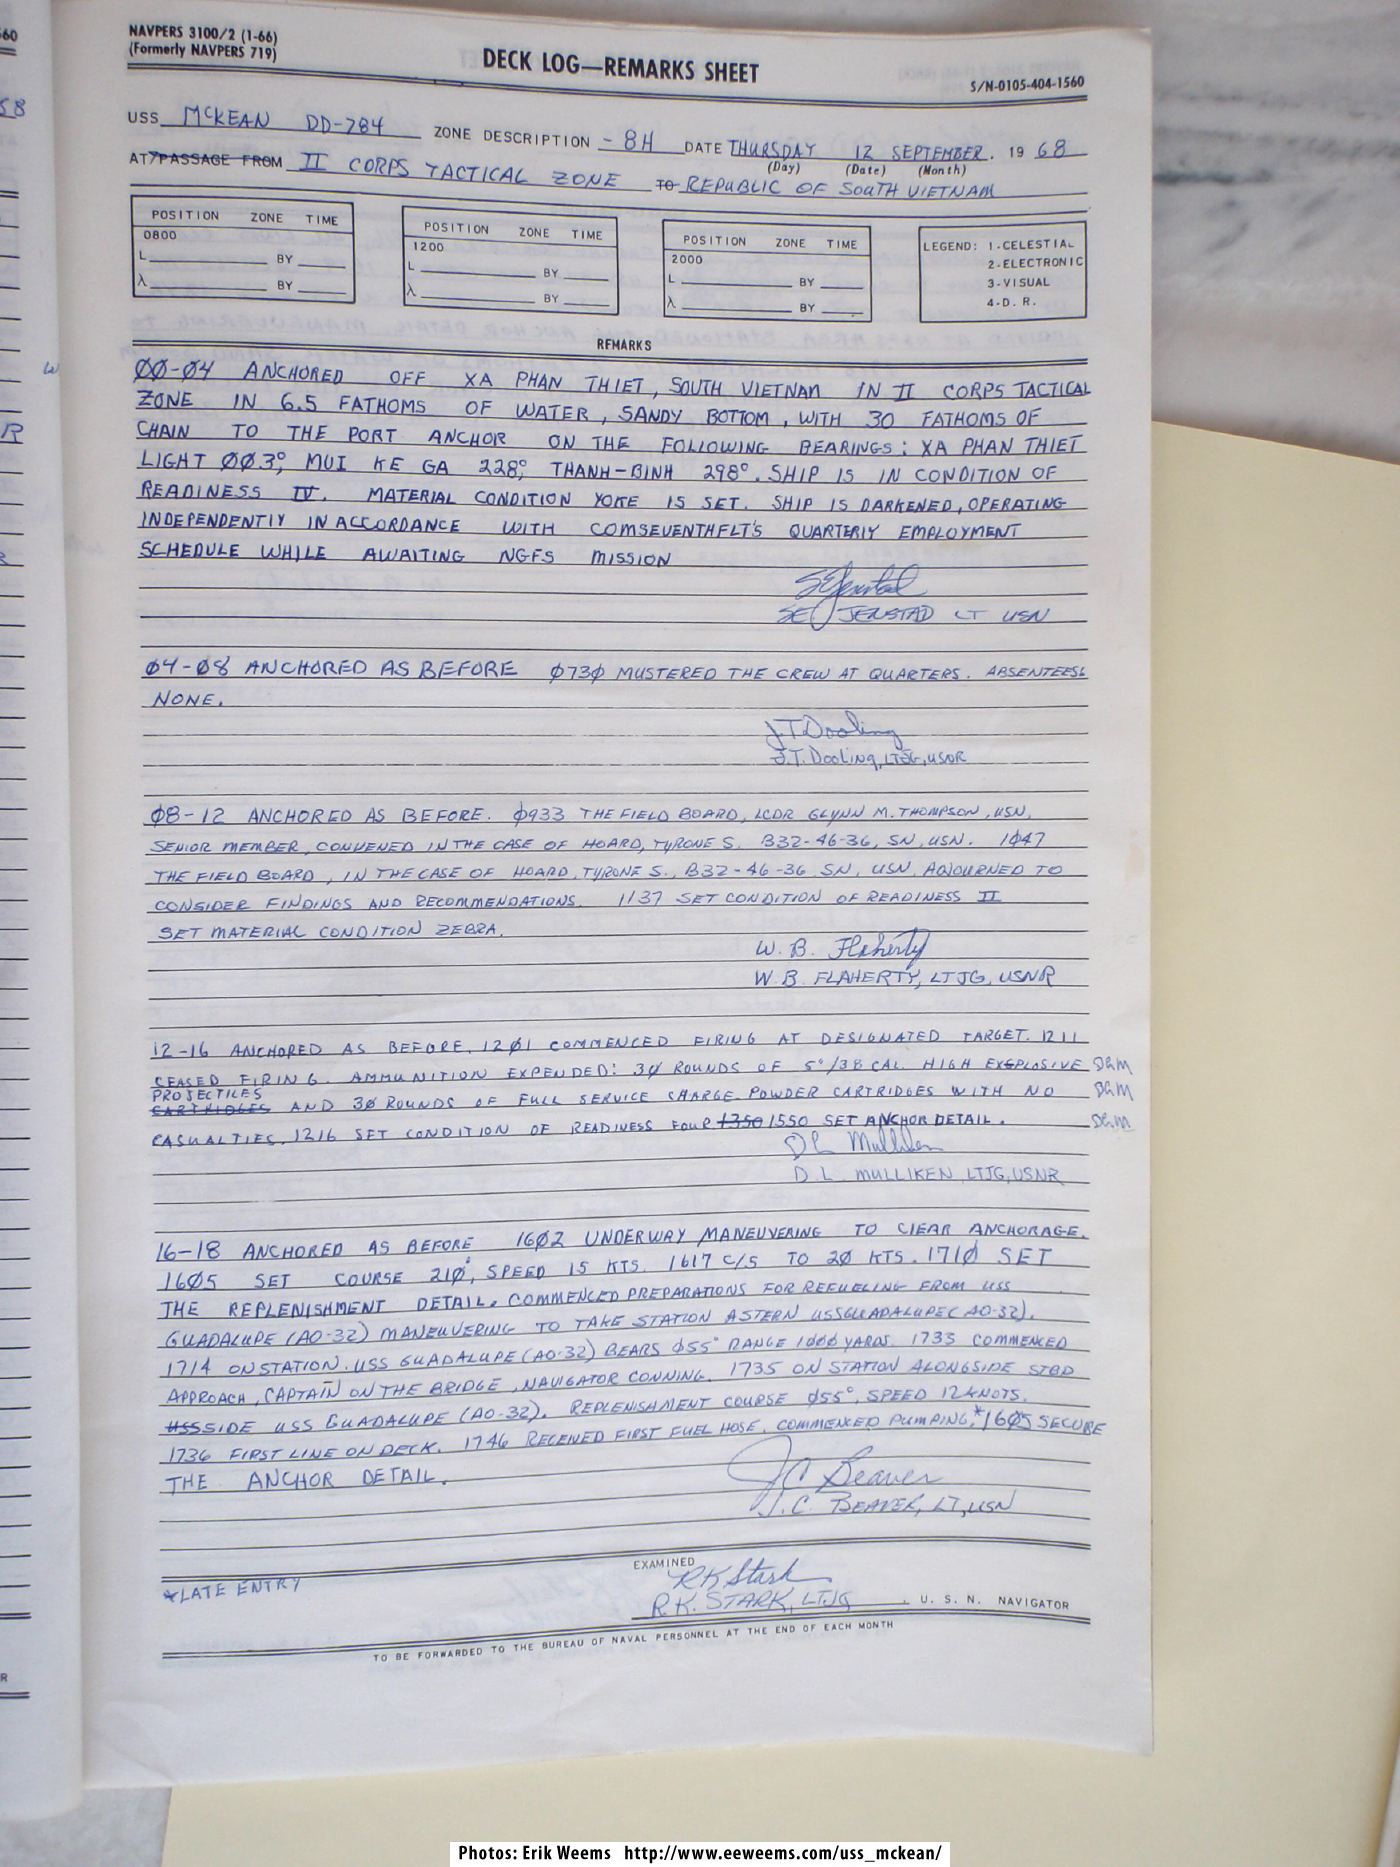 NAVPERS 3100/2 (1-66)
(Formerly NAVPERS 719)
DECK LOG—REMARKS SHEET
S/N-0105-404-1560
USS McKEAN DD-784 ZONE DESCRIPTION -8H DATE THURSDAY 12 SEPTEMBER. 19 68
(Day) (Date) (Month)
AT/PASSAGE FROM II CORPS TACTICAL ZONE TO REPUBLIC OF SOUTH VIETNAM
POSITION ZONE TIME
0800
L BY
λ BY
POSITION ZONE TIME
1200
L BY
λ BY
POSITION ZONE TIME
2000
L BY
λ BY
LEGEND: 1-CELESTIAL
2-ELECTRONIC
3-VISUAL
4-D. R.
REMARKS
ØØ-Ø4 ANCHORED OFF XA PHAN THIET, SOUTH VIETNAM IN II CORPS TACTICAL
ZONE IN 6.5 FATHOMS OF WATER, SANDY BOTTOM, WITH 30 FATHOMS OF
CHAIN TO THE PORT ANCHOR ON THE FOLLOWING BEARINGS: XA PHAN THIET
LIGHT ØØ3°, MUI KE GA 228°, THANH-BINH 298°. SHIP IS IN CONDITION OF
READINESS IV. MATERIAL CONDITION YOKE IS SET. SHIP IS DARKENED, OPERATING
INDEPENDENTLY IN ACCORDANCE WITH COMSEVENTHFLT'S QUARTERLY EMPLOYMENT
SCHEDULE WHILE AWAITING NGFS MISSION
SE Jenstad
SE JENSTAD LT USN
Ø4-Ø8 ANCHORED AS BEFORE Ø73Ø MUSTERED THE CREW AT QUARTERS. ABSENTEES:
NONE.
J.T. Dooling
J.T. Dooling, LTJG, USNR
Ø8-12 ANCHORED AS BEFORE. Ø933 THE FIELD BOARD, LCDR GLYNN M. THOMPSON, USN,
SENIOR MEMBER, CONVENED IN THE CASE OF HOARD, TYRONE S. B32-46-36, SN, USN. 1Ø47
THE FIELD BOARD, IN THE CASE OF HOARD, TYRONE S., B32-46-36 SN, USN, ADJOURNED TO
CONSIDER FINDINGS AND RECOMMENDATIONS. 1137 SET CONDITION OF READINESS II
SET MATERIAL CONDITION ZEBRA.
W. B. Flaherty
W. B. FLAHERTY, LTJG, USNR
12-16 ANCHORED AS BEFORE. 12Ø1 COMMENCED FIRING AT DESIGNATED TARGET. 1211
CEASED FIRING. AMMUNITION EXPENDED: 3Ø ROUNDS OF 5"/38 CAL. HIGH EXSPLOSIVE DLM
PROJECTILES
CARTRIDGES AND 3Ø ROUNDS OF FULL SERVICE CHARGE POWDER CARTRIDGES WITH NO DLM
CASUALTIES. 1216 SET CONDITION OF READINESS FOUR 1350 1550 SET ANCHOR DETAIL. DLM
DL Mulliken
D. L. MULLIKEN, LTJG, USNR
16-18 ANCHORED AS BEFORE 16Ø2 UNDERWAY MANEUVERING TO CLEAR ANCHORAGE.
16Ø5 SET COURSE 21Ø°, SPEED 15 KTS. 1617 C/S TO 2Ø KTS. 171Ø SET
THE REPLENISHMENT DETAIL. COMMENCED PREPARATIONS FOR REFUELING FROM USS
GUADALUPE (AO-32) MANEUVERING TO TAKE STATION ASTERN USS GUADALUPE (AO-32).
1714 ON STATION. USS GUADALUPE (AO-32) BEARS Ø55° RANGE 1ØØØ YARDS. 1733 COMMENCED
APPROACH, CAPTAIN ON THE BRIDGE, NAVIGATOR CONNING. 1735 ON STATION ALONGSIDE STBD
USS SIDE USS GUADALUPE (AO-32). REPLENISHMENT COURSE Ø55°, SPEED 12 KNOTS.
1736 FIRST LINE ON DECK. 1746 RECEIVED FIRST FUEL HOSE, COMMENCED PUMPING. *16Ø5 SECURE
THE ANCHOR DETAIL.
JC Beaver
J. C. BEAVER, LT, USN
EXAMINED
*LATE ENTRY
RK Stark
R.K. STARK, LTJG, U. S. N. NAVIGATOR
TO BE FORWARDED TO THE BUREAU OF NAVAL PERSONNEL AT THE END OF EACH MONTH
Photos: Erik Weems http://www.eeweems.com/uss_mckean/